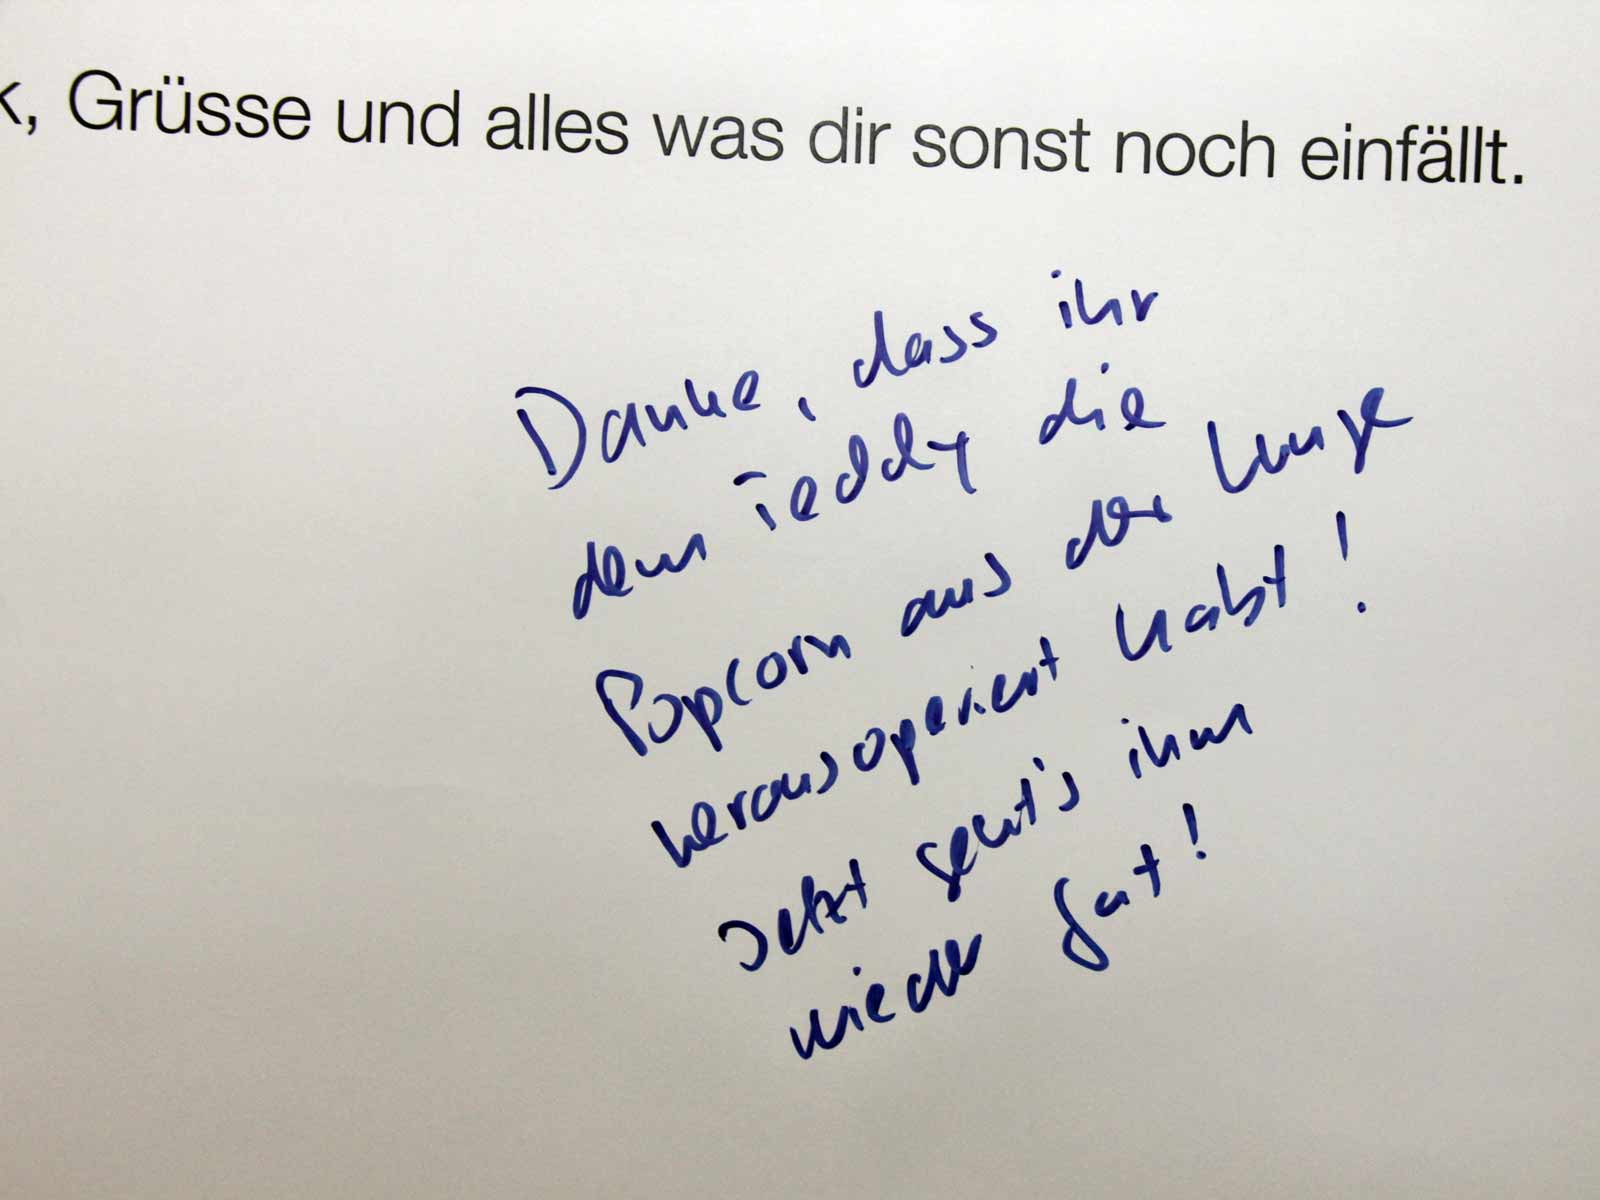 k, Grüsse und alles was dir sonst noch einfällt.
Danke, dass ihr
dem Teddy die
Popcorn aus der Lunge
herausoperiert habt!
Jetzt geht's ihm
wieder gut!